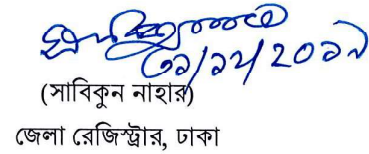 ৩১/১২/২০১৯
(সাবিকুন নাহার)
জেলা রেজিস্ট্রার, ঢাকা